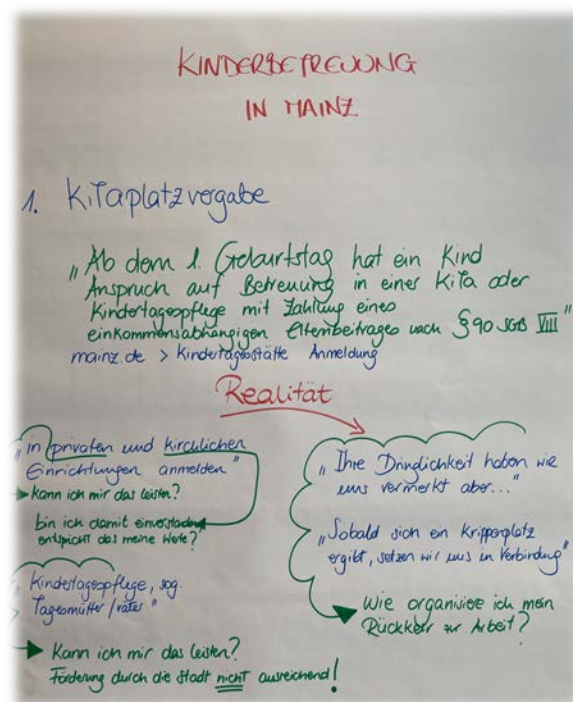 KINDERBETREUUNG
IN MAINZ
1. KiTaplatzvergabe
„Ab dem 1. Geburtstag hat ein Kind
Anspruch auf Betreuung in einer KiTa oder
Kindertagespflege mit Zahlung eines
einkommensabhängigen Elternbeitrages nach § 90 SGB VIII"
mainz.de > Kindertagesstätte Anmeldung
Realität
„in privaten und kirchlichen
Einrichtungen anmelden"
Kann ich mir das leisten?
bin ich damit einverstanden
entspricht das meine Werte?
„Kindertagespflege, sog.
Tagesmütter/väter"
Kann ich mir das leisten?
Förderung durch die Stadt nicht ausreichend!
„Ihre Dringlichkeit haben wir
uns vermerkt aber..."
„Sobald sich ein Krippenplatz
ergibt, setzen wir uns in Verbindung"
Wie organisiere ich mein
Rückkehr zur Arbeit?